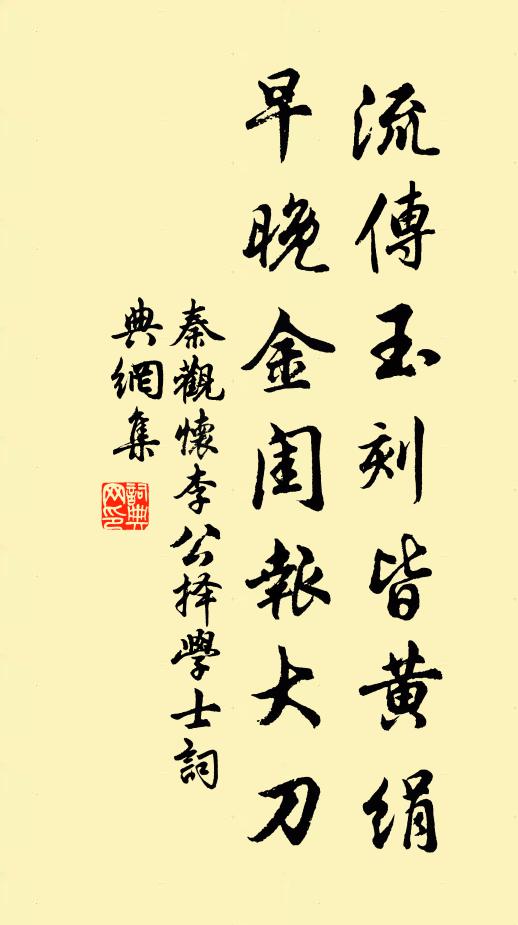 流傳玉刻皆黄絹
早晚金閨報大刀
秦觀懷李公择學士詞
典網集
詞典
网印